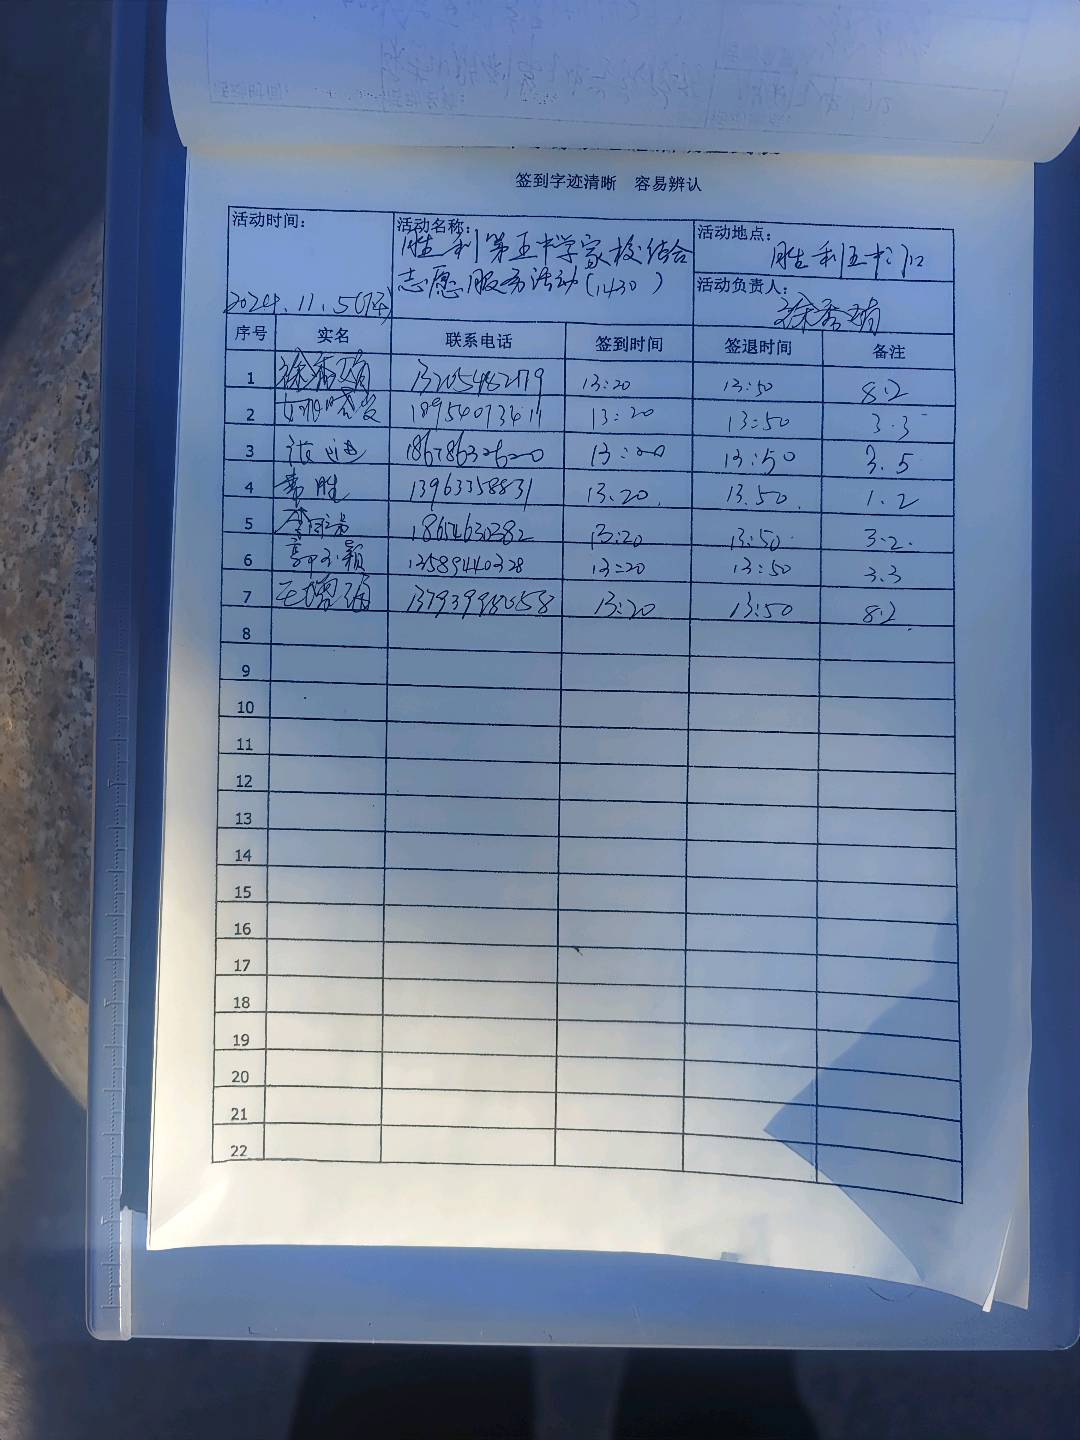 签到字迹清晰 容易辨认
活动时间: 活动名称: 活动地点:
胜利第五中学家校结合 胜利五中门口
志愿服务活动(1430)
2024.11.5 活动负责人: 徐秀娟
序号 实名 联系电话 签到时间 签退时间 备注
1 徐秀娟 13:20 13:50 8.2
2 18954073411 13:20 13:50 3.3
3 18678632620 13:20 13:50 3.5
4 胜 13963358831 13.20 13.50 1.2
5 18654630382 13:20 13:50 3.2
6 13589440328 13:20 13:50 3.3
7 王增娟 13793998058 13:20 13:50 8.2
8
9
10
11
12
13
14
15
16
17
18
19
20
21
22